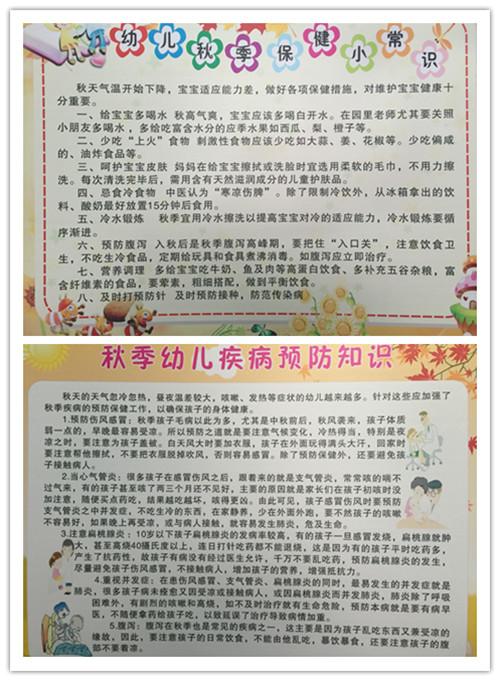 幼儿秋季保健小常识
秋天气温开始下降，宝宝适应能力差，做好各项保健措施，对维护宝宝健康十
分重要。
一、给宝宝多喝水 秋高气爽，宝宝应该多喝白开水。在园里老师尤其要关照
小朋友多喝水，多给吃富含水分的应季水果如西瓜、梨、橙子等。
二、少吃“上火”食物 刺激性食物应该少吃如大蒜、姜、花椒等。少吃偏咸
的、油炸食品等。
三、呵护宝宝皮肤 妈妈在给宝宝擦拭或洗脸时宜选用柔软的毛巾，不用力擦
洗。每次清洗完毕后，需用含有天然滋润成分的儿童护肤品。
四、忌食冷食物 中医认为“寒凉伤脾”。除了限制冷饮外，从冰箱拿出的饮
料、酸奶最好放置15分钟后食用。
五、冷水锻炼 秋季宜用冷水擦洗以提高宝宝对冷的适应能力，冷水锻炼要循
序渐进。
六、预防腹泻 入秋后是秋季腹泻高峰期，要把住“入口关”，注意饮食卫
生，不吃生冷食品，定期给玩具和食具煮沸消毒。如腹泻应立即治疗。
七、营养调理 多给宝宝吃牛奶、鱼及肉等高蛋白饮食、多补充五谷杂粮，富
含纤维素的食品，要荤素，粗细搭配，做到平衡饮食。
八、及时打预防针 及时预防接种，防范传染病
秋季幼儿疾病预防知识
秋天的天气忽冷忽热，昼夜温差较大，咳嗽、发热等症状的幼儿越来越多。针对这些应加强了
秋季疾病的预防保健工作，以确保孩子的身体健康。
1.预防伤风感冒：秋季孩子毛病以此为多，尤其是中秋前后，秋风袭来，孩子体质
弱一点的，早晚最容易受凉。所以预防之道就是要注意气候变化，冷热得当，特别是夜
凉之时，要注意为孩子盖被。白天风大时要加衣服，孩子在外面玩得满头大汗，回家时
要注意帮他擦拭，不要把衣服脱掉吹风，否则容易感冒。除了预防保健外，还要避免孩
子接触病人。
2.当心气管炎：很多孩子在感冒伤风之后，跟着来的就是支气管炎，常常咳的喘不
过气来，有的孩子甚至咳了两三个月还不见好，主要的原因就是家长们在孩子初咳时没
加注意，随便买点药吃，结果越吃越坏，咳得更凶。由此可见，孩子感冒伤风时要预防
支气管炎之并发症，不吃生冷的东西，在家静养，少在外面外跑，要不然孩子的咳嗽
不容易好，如果晚上再受凉，或与病人接触，就容易发生肺炎，危及生命。
3.注意扁桃腺炎：10岁以下孩子扁桃腺炎的发病率较高，有的孩子一旦感冒发烧，扁桃腺就肿
大，甚至高烧40摄氏度以上，连日打针吃药都不能退烧，这是因为有的孩子平时吃药多，
产生了抗药性，故孩子有病没有经过医生允许，千万不要乱吃药，预防扁桃腺炎的发生，
尽量避免孩子伤风感冒，不接触病人，增加孩子的营养，增强抵抗力。
4.重视并发症：在患伤风感冒、支气管炎、扁桃腺炎的同时，最易发生的并发症就是
肺炎，很多孩子病未痊愈又因受凉或接触病人，或因扁桃腺炎而并发肺炎，肺炎除了呼吸
困难外，有剧烈的咳嗽和高烧，如不及时治疗就有生命危险，预防本病就是要有病早
医，不随便拿药给孩子吃，以致延误了治疗导致病情加重。
5.腹泻：腹泻在秋季也是常见的疾病之一，这主要是因为孩子乱吃东西又兼受凉的
缘故，因此，要注意孩子的日常饮食，不能由他乱吃，暴饮暴食，还要注意孩子的腹
部不要着凉。